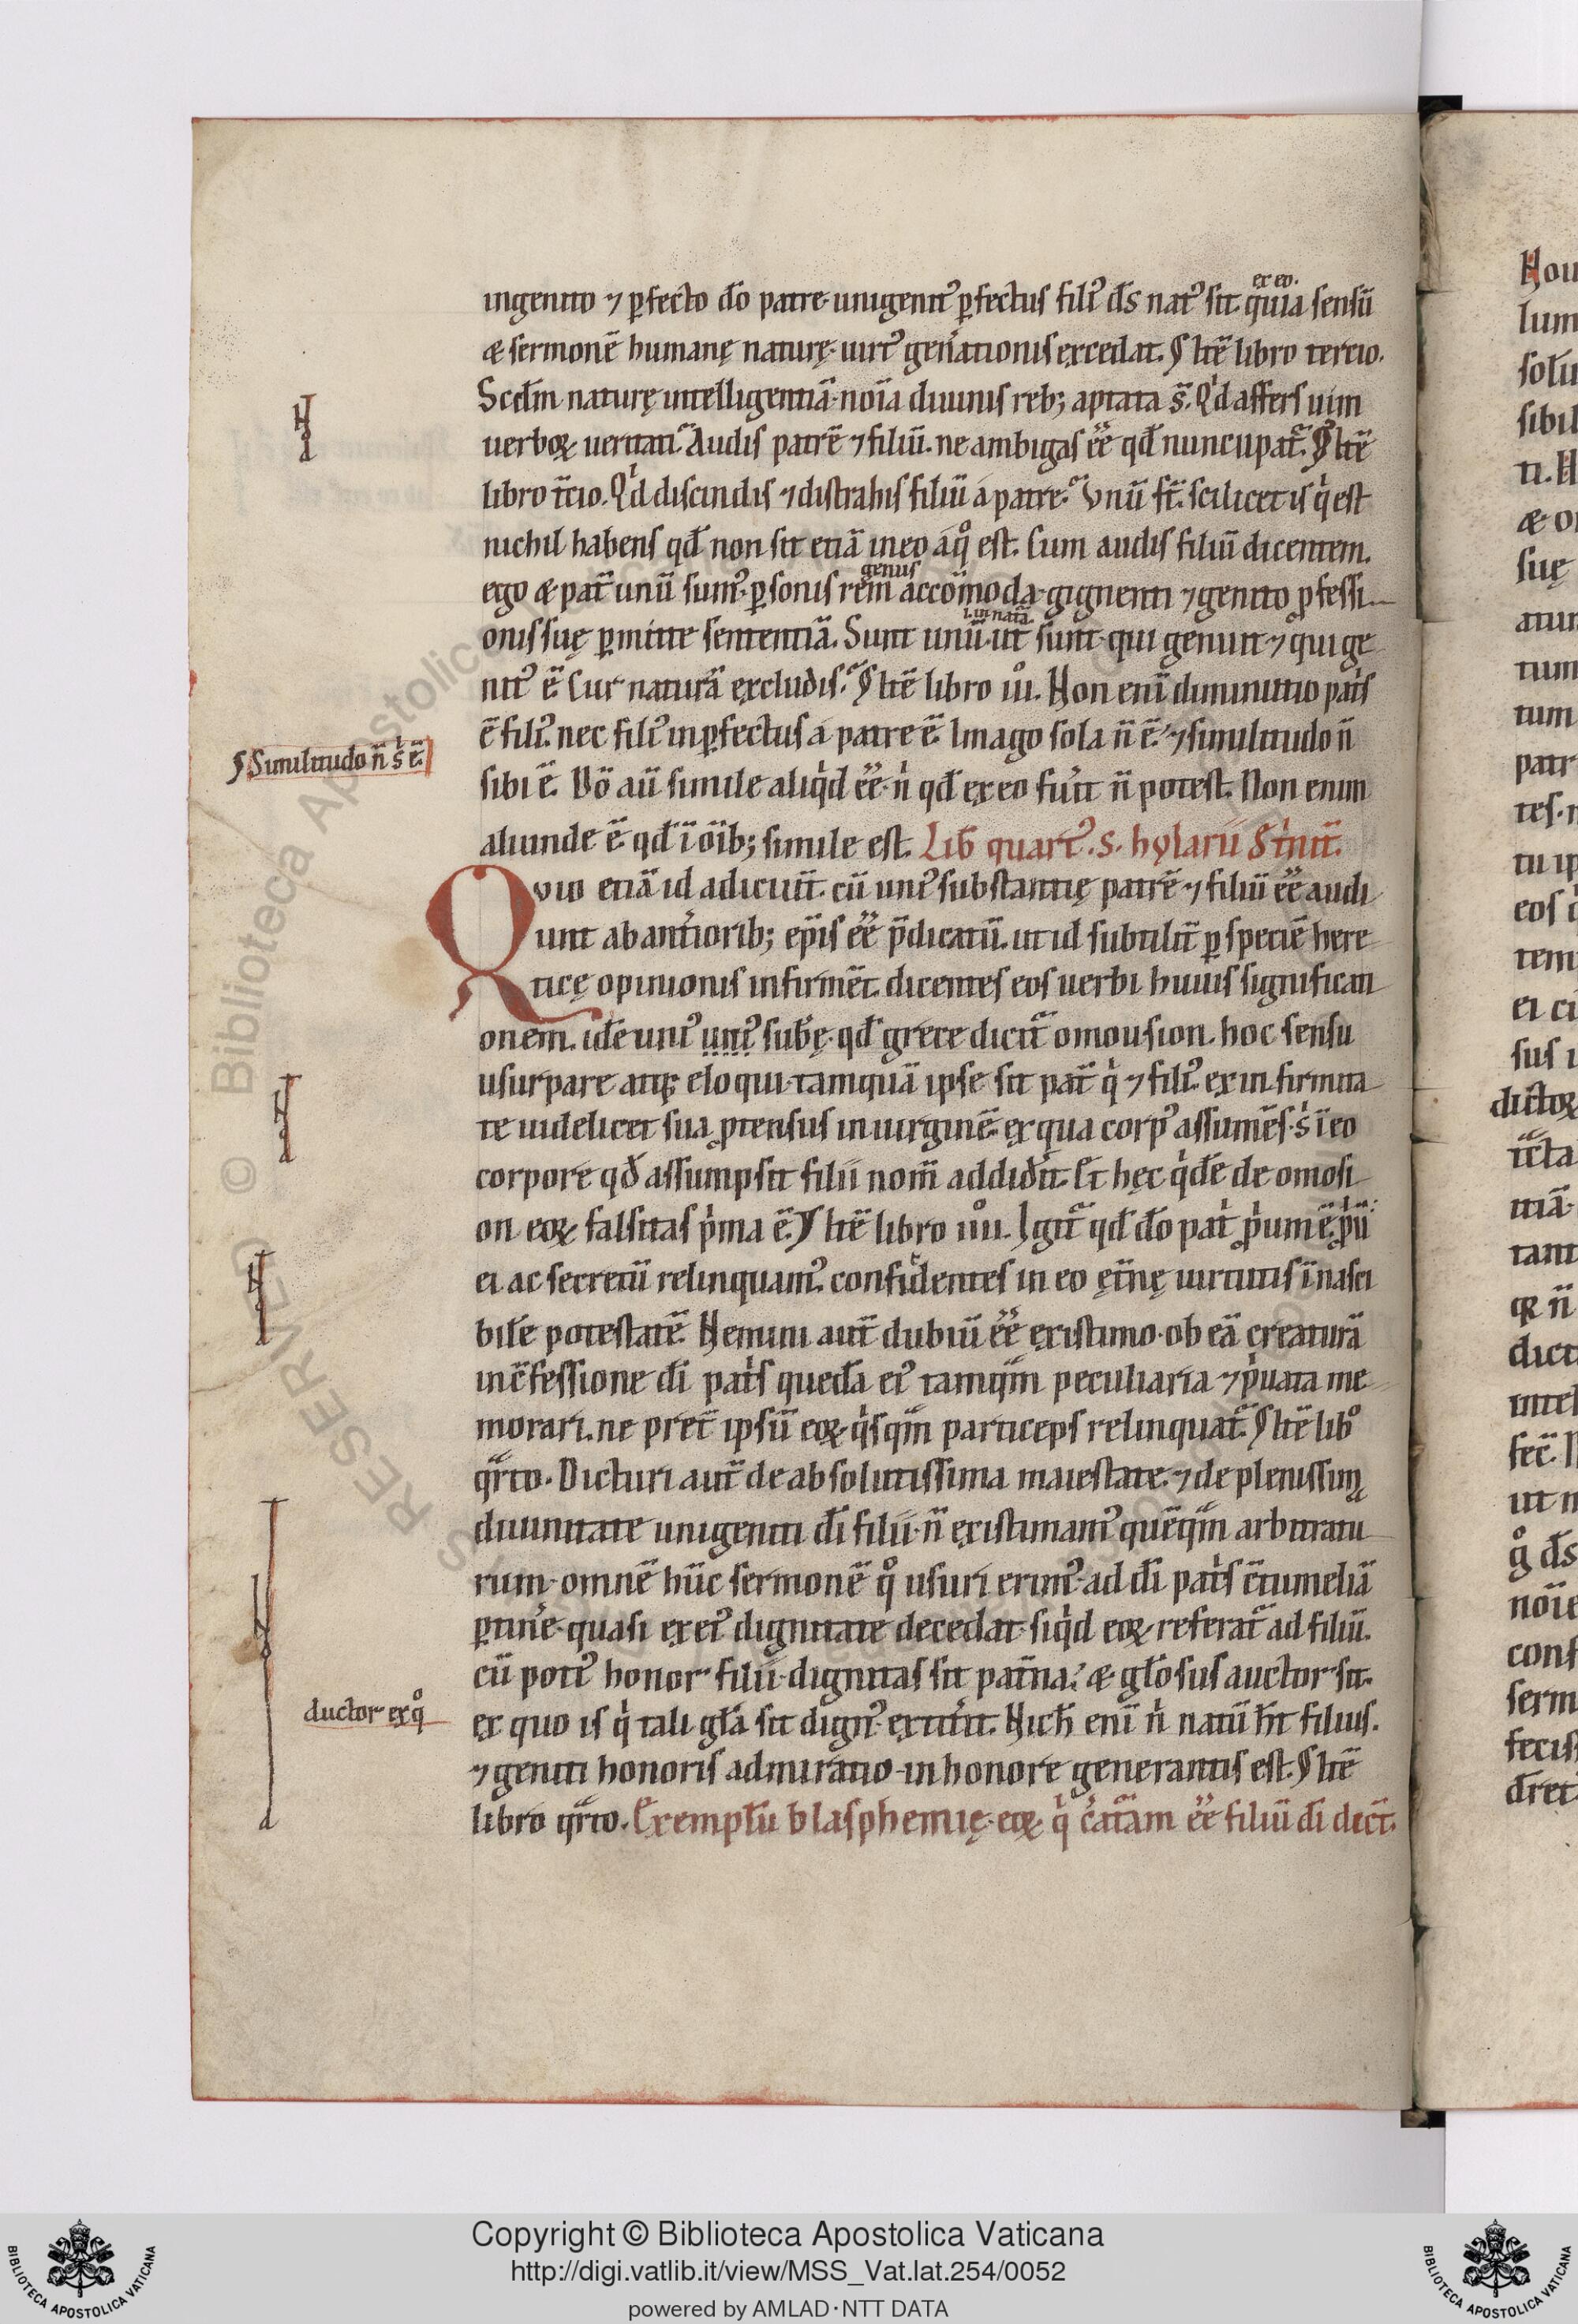 ex eo.
ingenito ⁊ ꝑfecto do̅ patre unigenit᷒ ꝑfectus fili᷒ ds̅ nat᷒ sit quia sensu̅
æ sermone̅ humanę naturę uirt᷒ gen̓ationis excedat. ⸿ Ite̅ libro tercio.
Scd̅m naturę intelligentia̅ noi̅a diuinis reb; aptata s̅. Qͥd affers uim
uerboꝝ ueritati? Audis patre̅ ⁊ filiu̅. ne ambigas ee̅ qd̅ nuncupat᷑. ⸿ Ite̅
libro t̅cio. Qͥd discindis ⁊ distrahis filiu̅ a patre? Vnu̅ st̅. scilicet is qͥ est
nichil habens qd̅ non sit etia̅ in eo a qͦ est. Cum audis filiu̅ dicentem.
genus
ego æ pat̅ unu̅ sum᷒. ꝑsonis rem accom̅oda gignenti ⁊ genito ꝓfessi
i. in nat̅a
onis suę ꝑmitte sententia̅. Sunt unu̅ ut sunt qui genuit ⁊ qui ge
nit᷒ e̅. Cur natura̅ excludis? ⸿ Ite̅ libro iiiͦ. Non eni̅ diminutio patͥs
e̅ fili᷒. nec fili᷒ inꝑfectus a patre e̅. Imago sola n̅ e̅. ⁊ similitudo n̅
⸿ Similitudo n̅ sͥ e̅.
sibi e̅. Do̅ au̅ simile aliqͥd ee̅ nͥ qd̅ ex eo fu̓it n̅ potest. Non enim
aliunde e̅ qd̅ i̅ oi̅b; simile est. Lib̅ quart᷒ .S. hylarii S t̓nit̅.
Qvio etia̅ id adiciu̅t. cu̅ uni᷒ substantię patre̅ ⁊ filiu̅ ee̅ audi
unt ab ant̓iorib; epi̅s ee̅ p̅dicatu̅. ut id subtilit̅ ꝑ specie̅ here
ticę opinionis infirme̅t. dicentes eos uerbi huius significati
onem. id e̅ uni᷒ uni᷒ sub̅ę qd̅ grece dicit᷑ omousion. hoc sensu
usurpare atq; eloqui. tamqua̅ ipse sit pat̅ qͥ ⁊ fili᷒. ex infirmita
te uidelicet sua ꝓtensus in uirgine̅. ex qua corp᷒ assume̅s. sͥ i̅ eo
corpore qd̅ assumpsit filii nom̅ addid̓it. Et hęc qͥde̅ de omosi
on eoꝝ falsitas pͥma e̅. ⸿ Ite̅ libro iiiiͦ. Igit᷑ qd̅ do̅ patͥ ꝓpͥum e̅. ꝓpͥu̅
ei ac secretu̅ relinquam᷒. confidentes in eo ęt̅nę uirtutis i̅nasci
bile̅ potestate̅. Nemini aut̅ dubiu̅ ee̅ existimo. ob ea̅ creatura̅
in c̅fessione di̅ patͥs queda̅ ei᷒ tamqᷓm peculiaria ⁊ pͥuata me
morari. ne pret̅ ipsu̅ eoꝝ qͥsqᷓm particeps relinquat᷑. ⸿ Ite̅ libͦ
qᷓrto. Dicturi aut̅ de absolutissima maiestate ⁊ de plenissim
diuinitate unigeniti di̅ filii. n̅ existimam᷒ que̅qᷓm arbitratu
rum. omne̅ hu̅c sermone̅ qͦ usuri erim᷒. ad di̅ patͥs c̅tumelia̅
ꝑtin̓e. quasi ex ei᷒ dignitate decedat. siqͥd eoꝝ referat᷑ ad filiu̅.
cu̅ poti᷒ honor filii dignitas sit pat̅na. æ glo̅sus auctor sit.
ductor ex qͦ
ex quo is qͥ tali gl̅a sit dign᷒ extit̓it. Nich̅ eni̅ nͥ natu̅ h̅t filius.
⁊ geniti honoris admiratio in honore generantis est. ⸿ Ite̅
libro qᷓrto. Exemplu̅ blasphemię eoꝝ qͥ c̓atᷓam ee̅ filiu̅ di̅ dicu̅t.
Copyright © Biblioteca Apostolica Vaticana
http://digi.vatlib.it/view/MSS_Vat.lat.254/0052
powered by AMLAD·NTT DATA